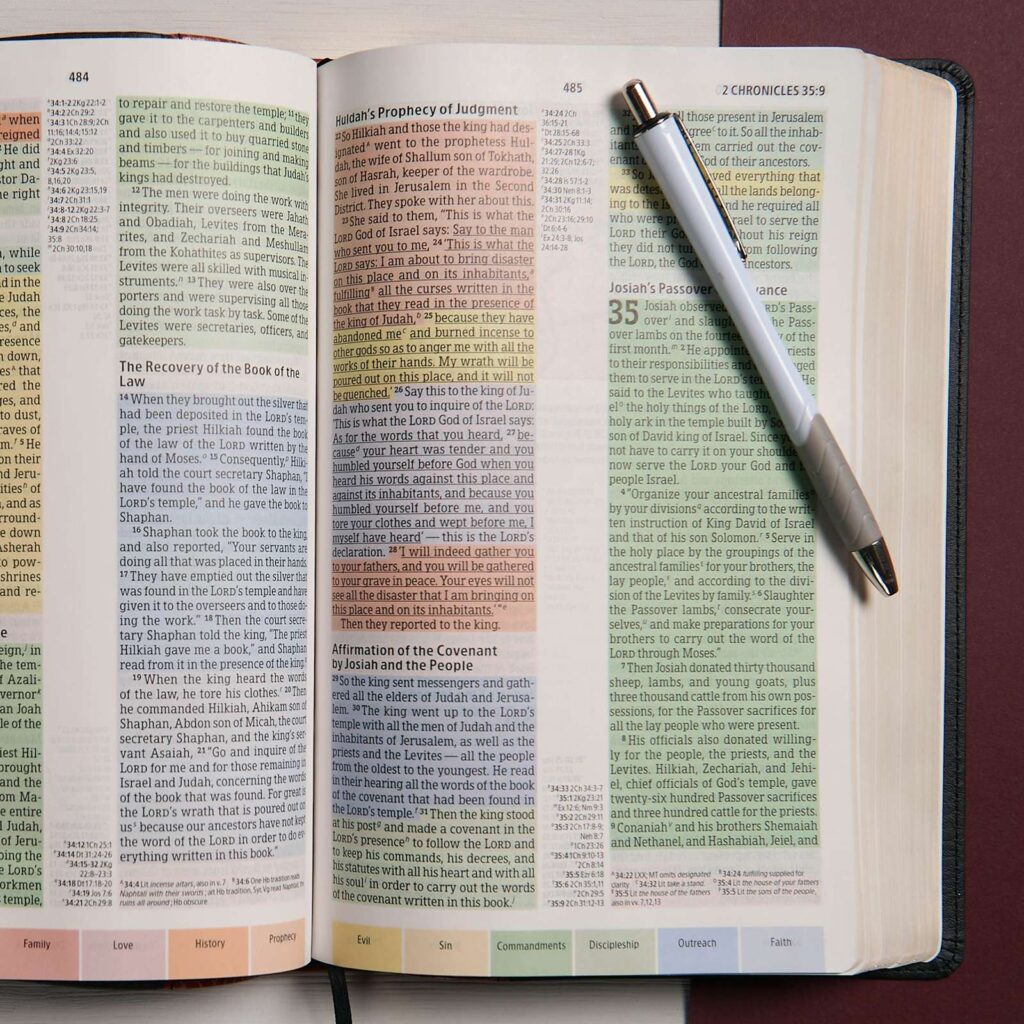 484
when
reigned
He did
right
, while
to seek
in the
Judah
and
down,
that
ed the
and
to dust,
raves of
He
on their
and Jeru-
of
and as
e down
Asherah
to pow-
shrines
and re-
in
the tem-
of Azali-
overnor
an Joah
le of the
iest Hil-
brought
and the
om Ma-
e entire
d Judah,
of Jeru-
oing the
LORD's
orkmen
temple,
34:1-2 2Kg 22:1-2
34:2 2Ch 29:2
34:3 1Ch 28:9; 2Ch
11:16; 14:4; 15:12
2Ch 33:22
34:4 Ex 32:20
2Kg 23:6
34:5 2Kg 23:5,
8,16,20
34:6 2Kg 23:15,19
34:7 2Ch 31:1
34:8-12 2Kg 22:3-7
34:8 2Ch 18:25
34:9 2Ch 34:14;
35:8
2Ch 30:10,18
34:12 1Ch 25:1
34:14 Dt 31:24-26
34:15-32 2Kg
22:8–23:3
34:18 Dt 17:18-20
34:19 Jos 7:6
34:21 2Ch 29:8
to repair and restore the temple; 11 they
gave it to the carpenters and builders
and also used it to buy quarried stone
and timbers — for joining and making
beams — for the buildings that Judah's
kings had destroyed.
12 The men were doing the work with
integrity. Their overseers were Jahath
and Obadiah, Levites from the Mera-
rites, and Zechariah and Meshullam
from the Kohathites as supervisors. The
Levites were all skilled with musical in-
struments. 13 They were also over the
porters and were supervising all those
doing the work task by task. Some of the
Levites were secretaries, officers, and
gatekeepers.
The Recovery of the Book of the
Law
14 When they brought out the silver that
had been deposited in the LORD's tem-
ple, the priest Hilkiah found the book
of the law of the LORD written by the
hand of Moses. 15 Consequently, Hilki-
ah told the court secretary Shaphan, "I
have found the book of the law in the
LORD's temple," and he gave the book to
Shaphan.
16 Shaphan took the book to the king,
and also reported, "Your servants are
doing all that was placed in their hands.
17 They have emptied out the silver that
was found in the LORD's temple and have
given it to the overseers and to those do-
ing the work." 18 Then the court secre-
tary Shaphan told the king, "The priest
Hilkiah gave me a book," and Shaphan
read from it in the presence of the king.
19 When the king heard the words
of the law, he tore his clothes. 20 Then
he commanded Hilkiah, Ahikam son of
Shaphan, Abdon son of Micah, the court
secretary Shaphan, and the king's ser-
vant Asaiah, 21 "Go and inquire of the
LORD for me and for those remaining in
Israel and Judah, concerning the words
of the book that was found. For great is
the LORD's wrath that is poured out on
us because our ancestors have not kept
the word of the LORD in order to do ev-
erything written in this book."
34:4 Lit incense altars, also in v. 7 34:6 One Hb tradition reads
Naphtali with their swords; alt Hb tradition, Syr, Vg read Naphtali, the
ruins all around; Hb obscure
Family
Love
History
Prophecy
485
2 CHRONICLES 35:9
Huldah's Prophecy of Judgment
22 So Hilkiah and those the king had des-
ignated went to the prophetess Hul-
dah, the wife of Shallum son of Tokhath,
son of Hasrah, keeper of the wardrobe.
She lived in Jerusalem in the Second
District. They spoke with her about this.
23 She said to them, "This is what the
LORD God of Israel says: Say to the man
who sent you to me, 24 'This is what the
LORD says: I am about to bring disaster
on this place and on its inhabitants,
fulfilling all the curses written in the
book that they read in the presence of
the king of Judah, 25 because they have
abandoned me and burned incense to
other gods so as to anger me with all the
works of their hands. My wrath will be
poured out on this place, and it will not
be quenched.' 26 Say this to the king of Ju-
dah who sent you to inquire of the LORD:
'This is what the LORD God of Israel says:
As for the words that you heard, 27 be-
cause your heart was tender and you
humbled yourself before God when you
heard his words against this place and
against its inhabitants, and because you
humbled yourself before me, and you
tore your clothes and wept before me, I
myself have heard' — this is the LORD's
declaration. 28 'I will indeed gather you
to your fathers, and you will be gathered
to your grave in peace. Your eyes will not
see all the disaster that I am bringing on
this place and on its inhabitants.' "
Then they reported to the king.
Affirmation of the Covenant
by Josiah and the People
29 So the king sent messengers and gath-
ered all the elders of Judah and Jerusa-
lem. 30 The king went up to the LORD's
temple with all the men of Judah and the
inhabitants of Jerusalem, as well as the
priests and the Levites — all the people
from the oldest to the youngest. He read
in their hearing all the words of the book
of the covenant that had been found in
the LORD's temple. 31 Then the king stood
at his post and made a covenant in the
LORD's presence to follow the LORD and
to keep his commands, his decrees, and
his statutes with all his heart and with all
his soul in order to carry out the words
of the covenant written in this book.
34:24 2Ch
36:15-21
Dt 28:15-68
34:25 2Ch 33:3
34:27-28 1Kg
21:29; 2Ch 12:6-7;
32:26
34:28 Is 57:1-2
34:30 Neh 8:1-3
34:31 2Kg 11:14;
2Ch 30:16
2Ch 23:16; 29:10
Dt 6:4-6
Ex 24:3-8; Jos
24:14-28
34:33 2Ch 34:3-7
35:1 2Kg 23:21
Ex 12:6; Nm 9:3
35:2 2Ch 29:11
35:3 2Ch 17:8-9;
Neh 8:7
1Ch 23:26
35:4 1Ch 9:10-13
2Ch 8:14
35:5 Ezr 6:18
35:6 2Ch 35:1,11
35:9 2Ch 31:12-13
all those present in Jerusalem
and agree to it. So all the inhab-
itants em carried out the cov-
enant od of their ancestors.
33 So J ved everything that
was detes all the lands belong-
ing to the Is and he required all
who were pr rael to serve the
LORD their Go hout his reign
they did not tu om following
the LORD, the God ancestors.
Josiah's Passover vance
35 Josiah observ RD's Pass-
over and slaug the Pass-
over lambs on the fourt y of the
first month. 2 He appoint riests
to their responsibilities and aged
them to serve in the LORD's te He
said to the Levites who taug
el the holy things of the LORD,
holy ark in the temple built by So
son of David king of Israel. Since y
not have to carry it on your shoulde
now serve the LORD your God and
people Israel.
4 "Organize your ancestral families
by your divisions according to the writ-
ten instruction of King David of Israel
and that of his son Solomon. 5 Serve in
the holy place by the groupings of the
ancestral families for your brothers, the
lay people, and according to the divi-
sion of the Levites by family. 6 Slaughter
the Passover lambs, consecrate your-
selves, and make preparations for your
brothers to carry out the word of the
LORD through Moses."
7 Then Josiah donated thirty thousand
sheep, lambs, and young goats, plus
three thousand cattle from his own pos-
sessions, for the Passover sacrifices for
all the lay people who were present.
8 His officials also donated willing-
ly for the people, the priests, and the
Levites. Hilkiah, Zechariah, and Jehi-
el, chief officials of God's temple, gave
twenty-six hundred Passover sacrifices
and three hundred cattle for the priests.
9 Conaniah and his brothers Shemaiah
and Nethanel, and Hashabiah, Jeiel, and
34:22 LXX; MT omits designated 34:24 fulfilling supplied for
clarity 34:32 Lit take a stand. 35:4 Lit the house of your fathers
35:5 Lit the house of the fathers 35:5 Lit the sons of the people,
also in vv. 7,12,13
Evil
Sin
Commandments
Discipleship
Outreach
Faith